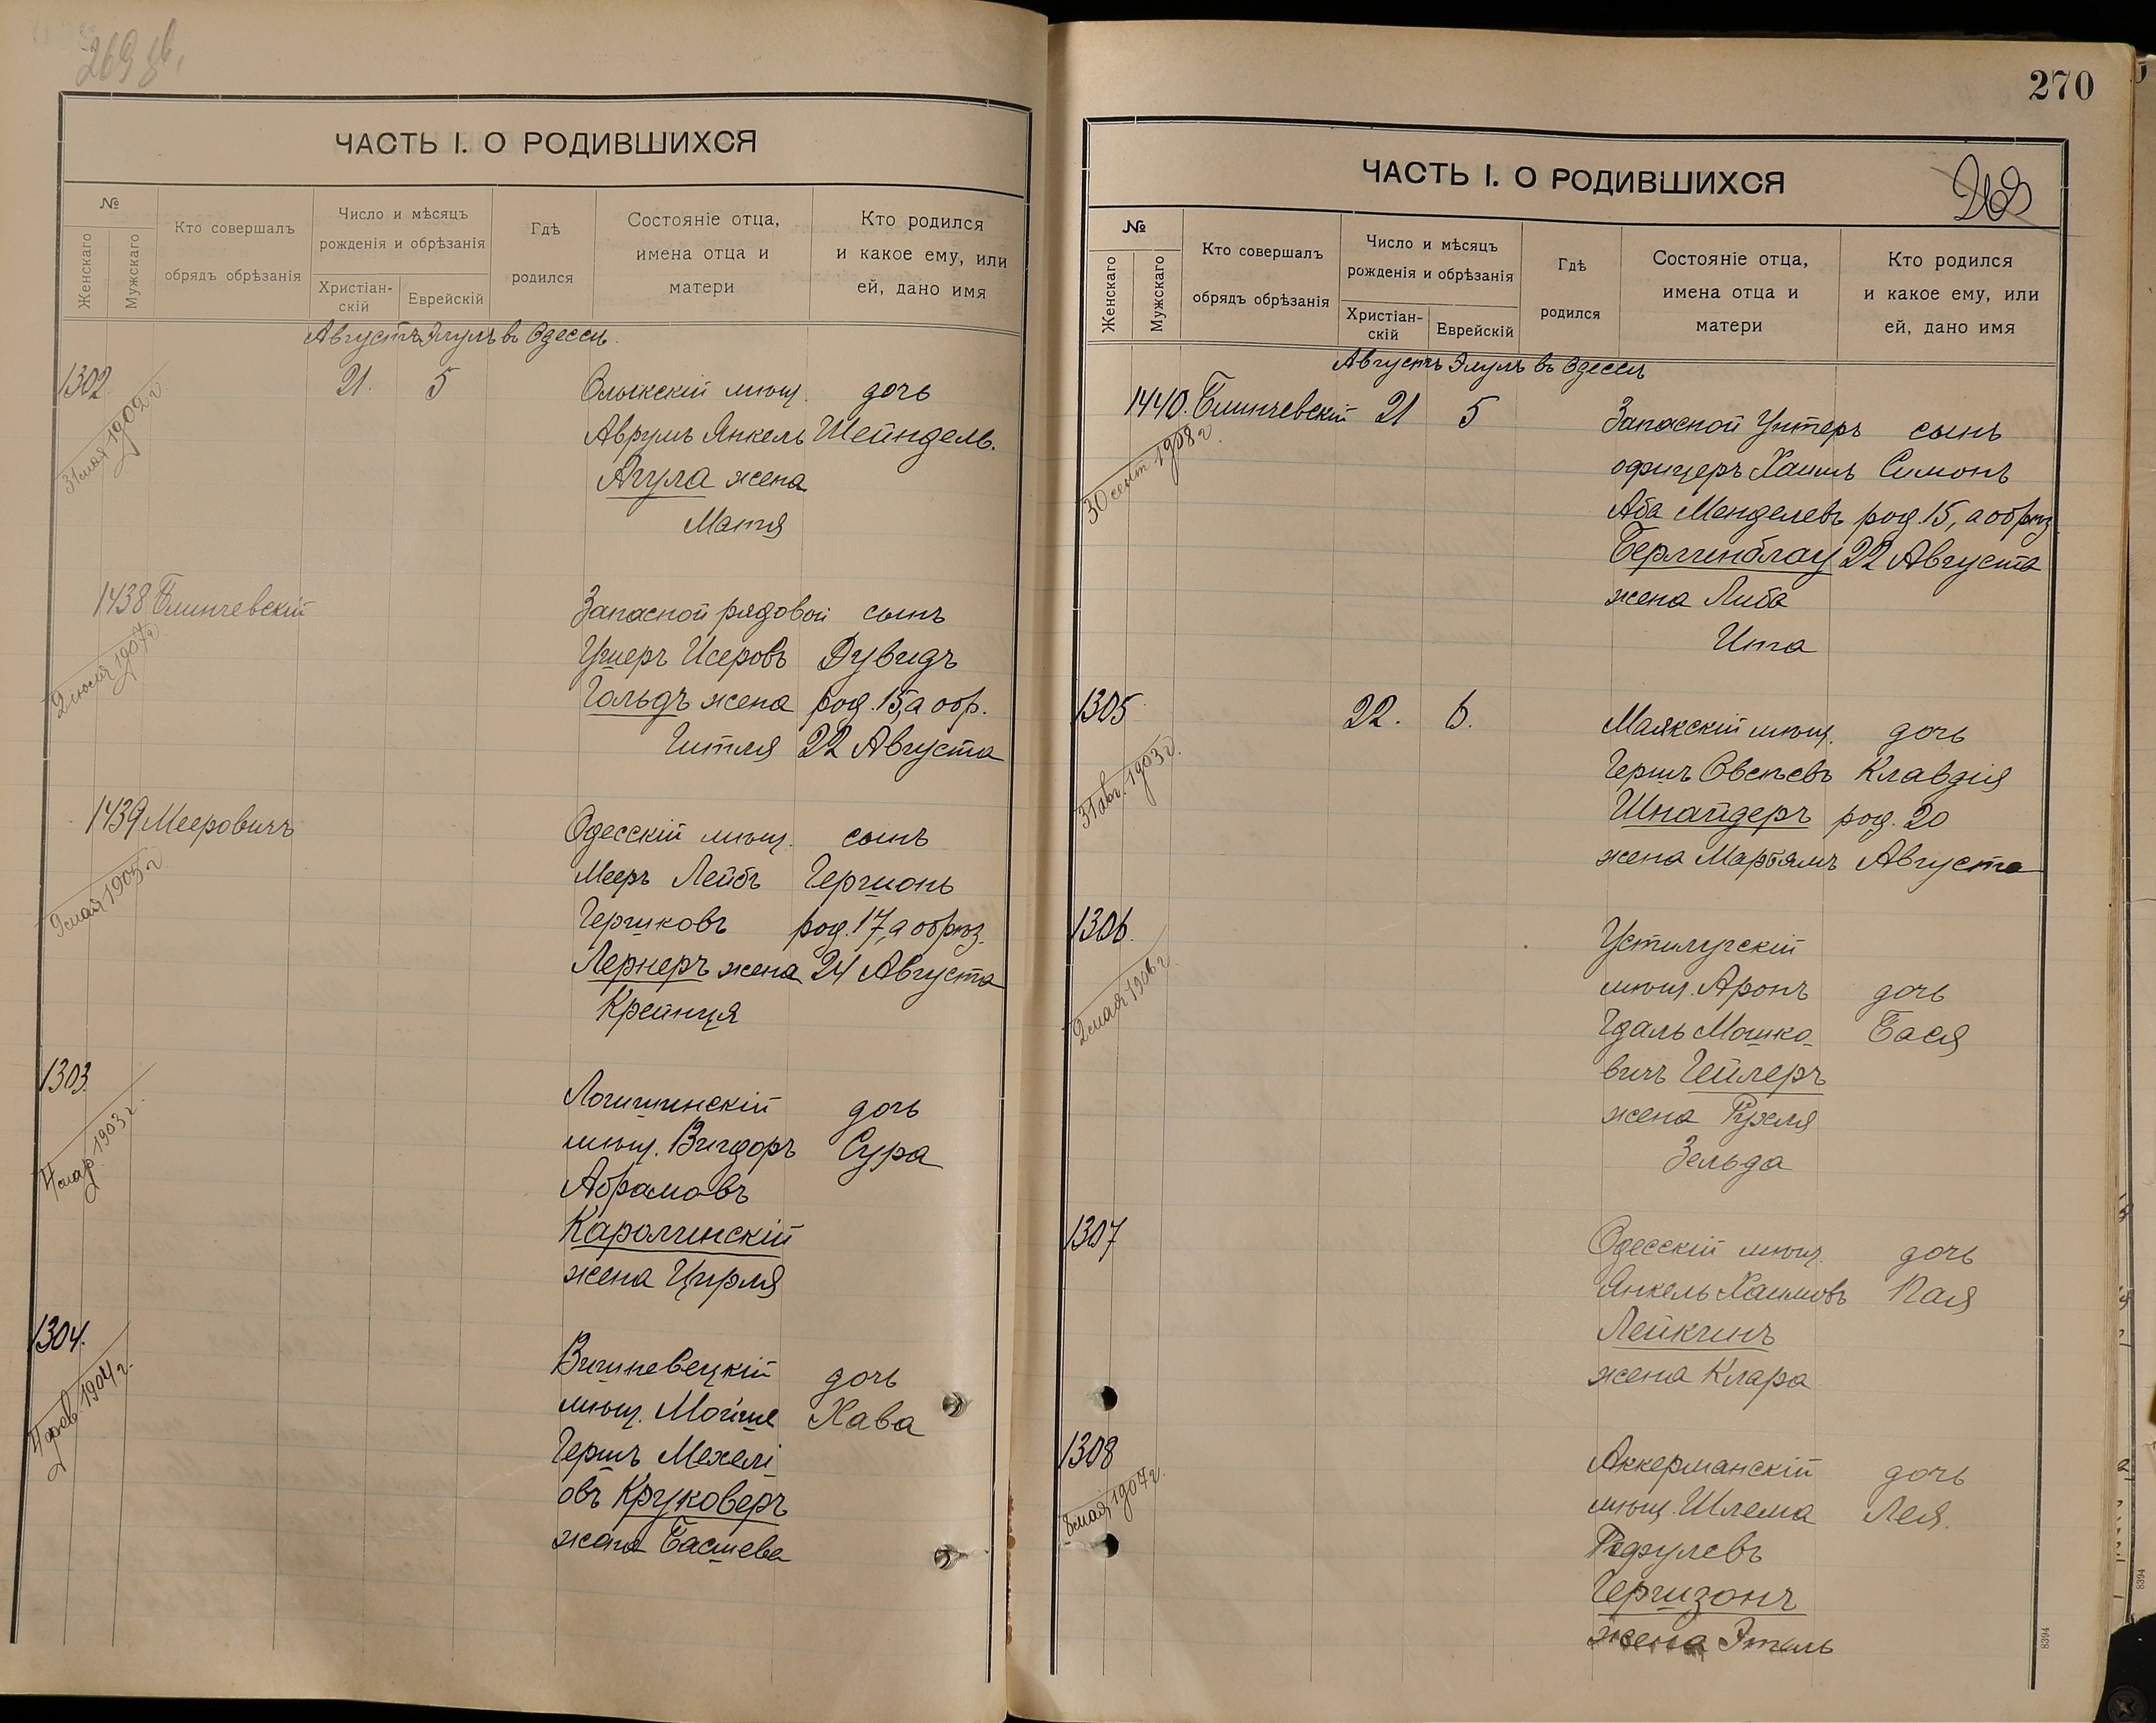 269 об.
ЧАСТЬ I. О РОДИВШИХСЯ
№
Женскаго
Мужскаго
Кто совершалъ
обрядъ обрѣзанія
Число и мѣсяцъ
рожденія и обрѣзанія
Христіан-
скій
Еврейскій
Гдѣ
родился
Состояніе отца,
имена отца и
матери
Кто родился
и какое ему, или
ей, дано имя
Августъ Элулъ въ Одессѣ.
1302. 21. 5 Олыкскій мѣщ. дочь
31 мая 1902 г.
Аврумъ Янкель Шейндель.
Агула жена
Матя
1438 Блинчевскій Запасной рядовой сынъ
2 1907 г.
Ушеръ Исеровъ Дувидъ
Гольдъ жена род. 15, а обр.
Гитля 22 Августа
1439 Мееровичъ Одесскій мѣщ. сынъ
9 мая 1905 г.
Мееръ Лейбъ Гершонъ
Гершковъ род. 17, а обрѣз.
Лернеръ жена 24 Августа
Крейнця
1303. Логишинскій дочь
4 мар. 1903 г.
мѣщ. Вигдоръ Сура
Абрамовъ
Каролинскій
жена Цирля
1304. Вишневецкій дочь
4 фев. 1904 г.
мѣщ. Мойше Хава
Гершъ Мехелі
овъ Круковеръ
жена Басшева
270
ЧАСТЬ I. О РОДИВШИХСЯ
269
№
Женскаго
Мужскаго
Кто совершалъ
обрядъ обрѣзанія
Число и мѣсяцъ
рожденія и обрѣзанія
Христіан-
скій
Еврейскій
Гдѣ
родился
Состояніе отца,
имена отца и
матери
Кто родился
и какое ему, или
ей, дано имя
Августъ Элулъ въ Одессѣ
1440. Блинчевскій 21 5 Запасной Унтеръ сынъ
30 сент. 1908 г.
офицеръ Хаимъ Симонъ
Аба Менделевъ род. 15, а обрѣз
Берлинблау 22 Августа
жена Либа
Ита
1305 22. 6. Маякскій мѣщ. дочь
31 авг. 1903 г.
Гершъ Овсѣевъ Клавдія
Шнайдеръ род. 20
жена Марьямъ Августа
1306. Устилугскій
2 мая 1906 г.
мѣщ. Аронъ дочь
Гдаль Мошко- Бася
вичъ Гейлеръ
жена Рухля
Зельда
1307 Одесскій мѣщ. дочь
Янкель Хаимовъ Пая
Лейкинъ
жена Клара
1308 Аккерманскій дочь
8 мая 1907 г.
мѣщ. Шлема Лея.
Рефулевъ
Гершзонъ
жена Этель
8394
8394